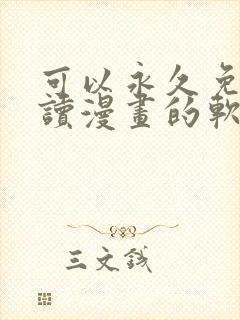 可以永久免
讀漫畫的軟
三文錢